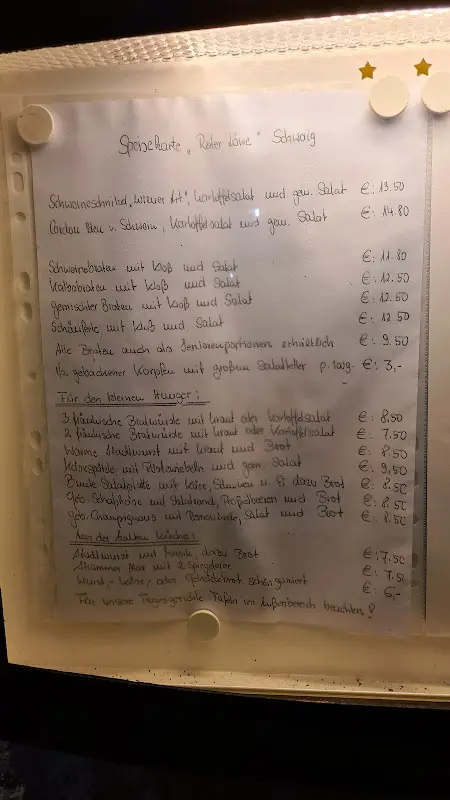 Speisekarte "Roter Löwe" Schwaig
Schweineschnitzel "Wiener Art", Kartoffelsalat und gem. Salat €: 13.50
Cordon Bleu v. Schwein, Kartoffelsalat und gem. Salat €: 14.80
Schweinebraten mit Kloß und Salat €: 11.80
Kalbsbraten mit Kloß und Salat €: 12.50
gemischter Braten mit Kloß und Salat €: 12.50
Schäuferle mit Kloß und Salat €: 12.50
Alle Braten auch als Seniorenportionen erhältlich €: 9.50
1/2 gebackener Karpfen mit großem Salatteller €: 3,-
Für den kleinen Hunger:
3 fränkische Bratwürste mit Kraut oder Kartoffelsalat €: 8.50
2 fränkische Bratwürste mit Kraut oder Kartoffelsalat €: 7.50
Warme Stadtwurst mit Kraut und Brot €: 8.50
Käsespätzle mit Röstzwiebeln und gem. Salat €: 9,50
Bunte Salatplatte mit Käse, Schinken u. Ei dazu Brot €: 8.50
geb. Schafskäse mit Salatrand, Preißelbeeren und Brot €: 8.50
geb. Champignons mit Remoulade, Salat und Brot €: 8.50
Aus der kalten Küche:
Stadtwurst mit Musik, dazu Brot €: 7.50
Strammer Max mit 2 Spiegeleier €: 7.50
Wurst-, Käse,- oder Gehäckbrot schön garniert €: 6,-
Für unsere Tagesgerichte Tafeln im Außenbereich beachten!